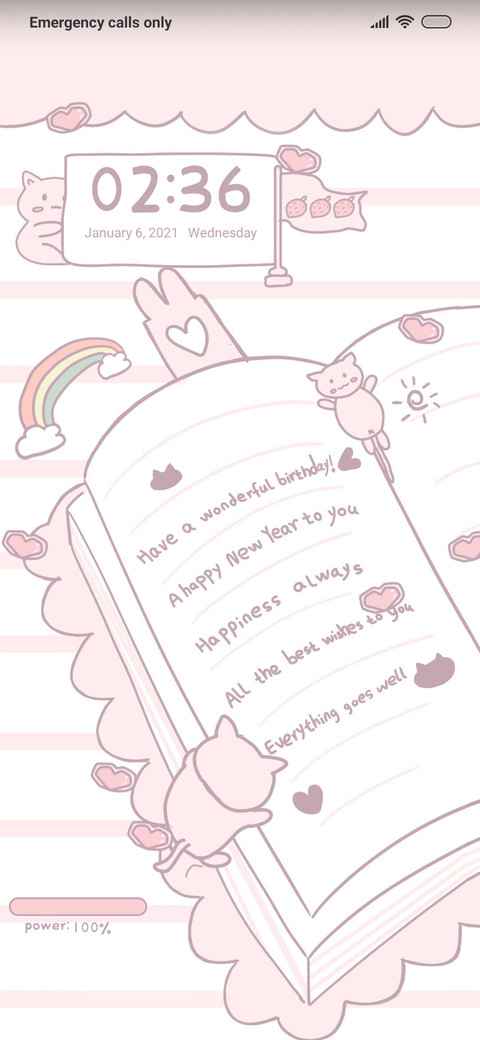 Emergency calls only
02:36
January 6, 2021 Wednesday
Have a wonderful birthday!
A happy New Year to you
Happiness always
All the best wishes to you
Everything goes well
power:100%